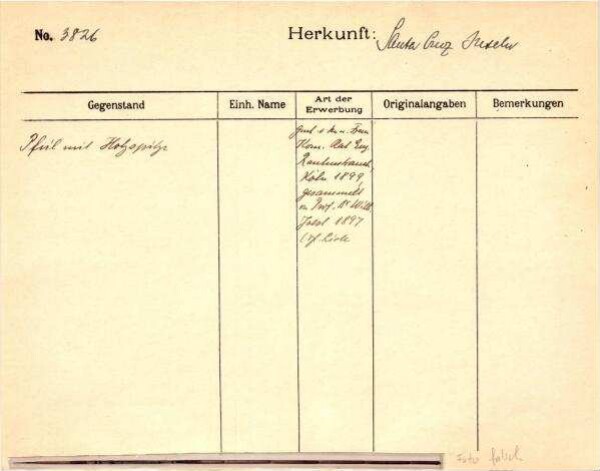 No. 3826
Herkunft: Santa Cruz Inseln
Gegenstand
Einh. Name
Art der
Erwerbung
Originalangaben
Bemerkungen
Pfeil mit Holzspitze
Kom. Rat Eug.
Rautenstrauch,
Köln 1899,
gesammelt
v. Prof. Dr Wilh.
Joest 1897
Foto falsch